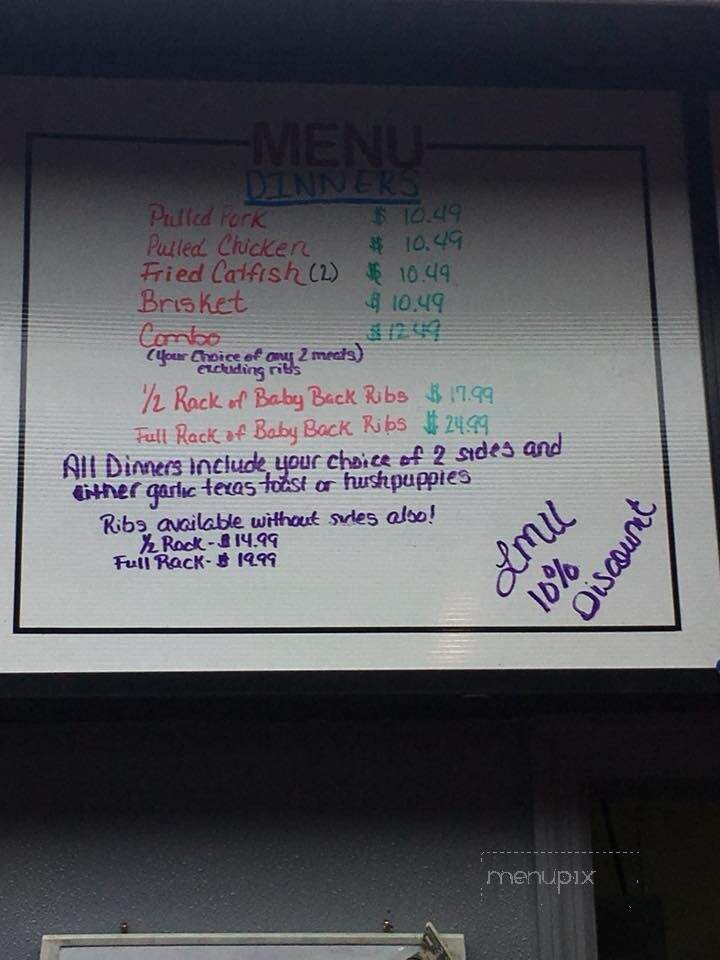 MENU
DINNERS
Pulled Pork $ 10.49
Pulled Chicken $ 10.49
Fried Catfish (2) $ 10.49
Brisket $ 10.49
Combo $ 12.49
(your choice of any 2 meats)
excluding ribs
1/2 Rack of Baby Back Ribs $ 17.99
Full Rack of Baby Back Ribs $ 24.99
All Dinners include your choice of 2 sides and
either garlic texas toast or hushpuppies
Ribs available without sides also!
1/2 Rack - $ 14.99
Full Rack - $ 19.99
LMU
10%
Discount
menupix